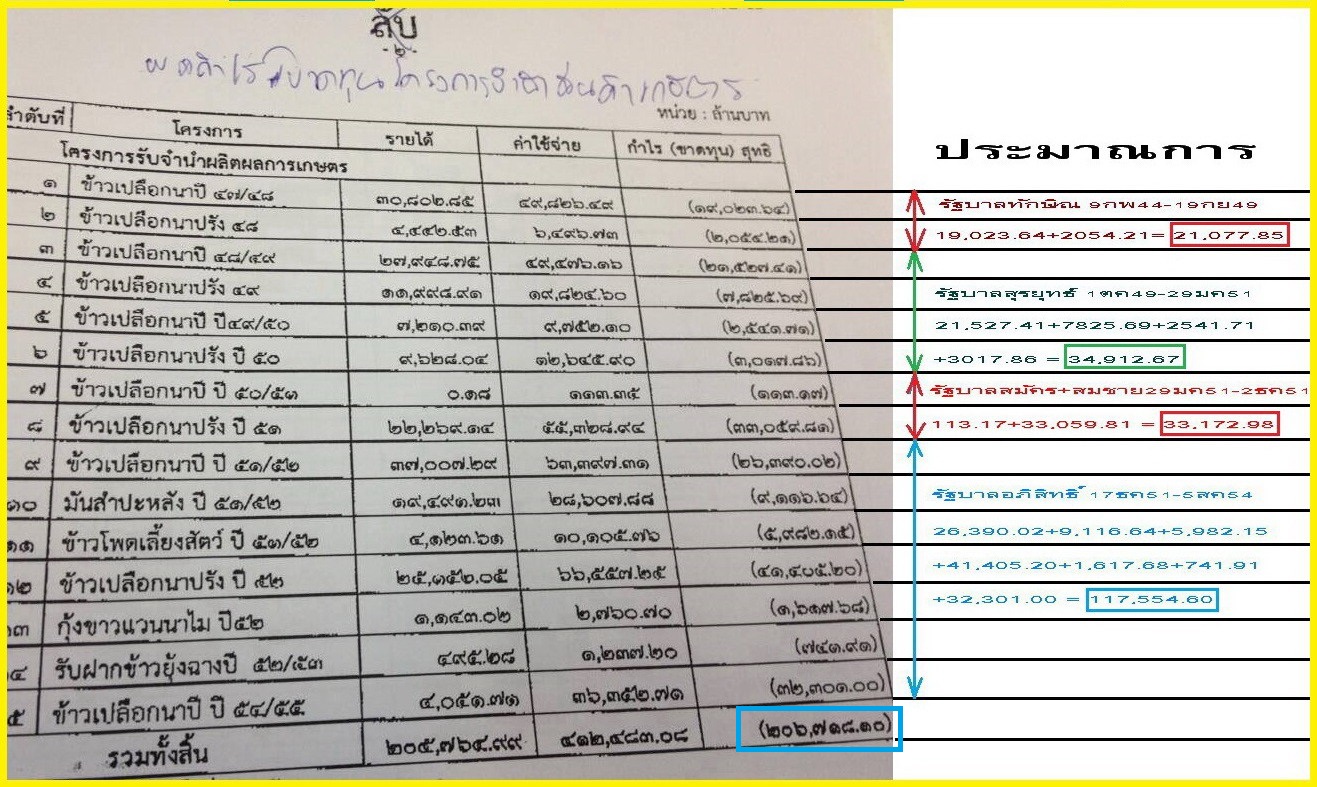 ลับ
- ๒ -
ผลกำไรขาดทุนโครงการรับจำนำสินค้าเกษตร
หน่วย : ล้านบาท
ลำดับที่ โครงการ รายได้ ค่าใช้จ่าย กำไร (ขาดทุน) สุทธิ
โครงการรับจำนำผลิตผลการเกษตร
๑ ข้าวเปลือกนาปี ๔๗/๔๘ ๓๐,๘๐๒.๘๕ ๔๙,๘๒๖.๔๙ (๑๙,๐๒๓.๖๔)
๒ ข้าวเปลือกนาปรัง ๔๘ ๔,๔๔๒.๕๓ ๖,๔๙๖.๗๓ (๒,๐๕๔.๒๑)
๓ ข้าวเปลือกนาปี ๔๘/๔๙ ๒๗,๙๔๘.๗๕ ๔๙,๔๗๖.๑๖ (๒๑,๕๒๗.๔๑)
๔ ข้าวเปลือกนาปรัง ๔๙ ๑๑,๙๙๘.๙๑ ๑๙,๘๒๔.๖๐ (๗,๘๒๕.๖๙)
๕ ข้าวเปลือกนาปี ปี๔๙/๕๐ ๗,๒๑๐.๓๙ ๙,๗๕๒.๑๐ (๒,๕๔๑.๗๑)
๖ ข้าวเปลือกนาปรัง ปี ๕๐ ๙,๖๒๘.๐๔ ๑๒,๖๔๕.๙๐ (๓,๐๑๗.๘๖)
๗ ข้าวเปลือกนาปี ปี ๕๐/๕๑ ๐.๑๘ ๑๑๓.๓๕ (๑๑๓.๑๗)
๘ ข้าวเปลือกนาปรัง ปี ๕๑ ๒๒,๒๖๙.๑๔ ๕๕,๓๒๘.๙๔ (๓๓,๐๕๙.๘๑)
๙ ข้าวเปลือกนาปี ปี ๕๑/๕๒ ๓๗,๐๐๗.๒๙ ๖๓,๓๙๗.๓๑ (๒๖,๓๙๐.๐๒)
๑๐ มันสำปะหลัง ปี ๕๑/๕๒ ๑๙,๔๙๑.๒๓ ๒๘,๖๐๗.๘๘ (๙,๑๑๖.๖๔)
๑๑ ข้าวโพดเลี้ยงสัตว์ ปี ๕๑/๕๒ ๔,๑๒๓.๖๑ ๑๐,๑๐๕.๗๖ (๕,๙๘๒.๑๕)
๑๒ ข้าวเปลือกนาปรัง ปี ๕๒ ๒๕,๑๕๒.๐๕ ๖๖,๕๕๗.๒๕ (๔๑,๔๐๕.๒๐)
๑๓ กุ้งขาวแวนนาไม ปี๕๒ ๑,๑๔๓.๐๒ ๒,๗๖๐.๗๐ (๑,๖๑๗.๖๘)
๑๔ รับฝากข้าวยุ้งฉางปี ๕๒/๕๓ ๔๙๕.๒๘ ๑,๒๓๗.๒๐ (๗๔๑.๙๑)
๑๕ ข้าวเปลือกนาปี ปี ๕๔/๕๕ ๔,๐๕๑.๗๑ ๓๖,๓๕๒.๗๑ (๓๒,๓๐๑.๐๐)
รวมทั้งสิ้น ๒๐๕,๗๖๔.๙๙ ๔๑๒,๔๘๓.๐๘ (๒๐๖,๗๑๘.๑๐)
ประมาณการ
รัฐบาลทักษิณ 9กพ44-19กย49
19,023.64+2054.21= 21,077.85
รัฐบาลสุรยุทธ์ 1ตค49-29มค51
21,527.41+7825.69+2541.71
+3017.86 = 34,912.67
รัฐบาลสมัคร+สมชาย29มค51-2ธค51
113.17+33,059.81 = 33,172.98
รัฐบาลอภิสิทธิ์ 17ธค51-5สค54
26,390.02+9,116.64+5,982.15
+41,405.20+1,617.68+741.91
+32,301.00 = 117,554.60